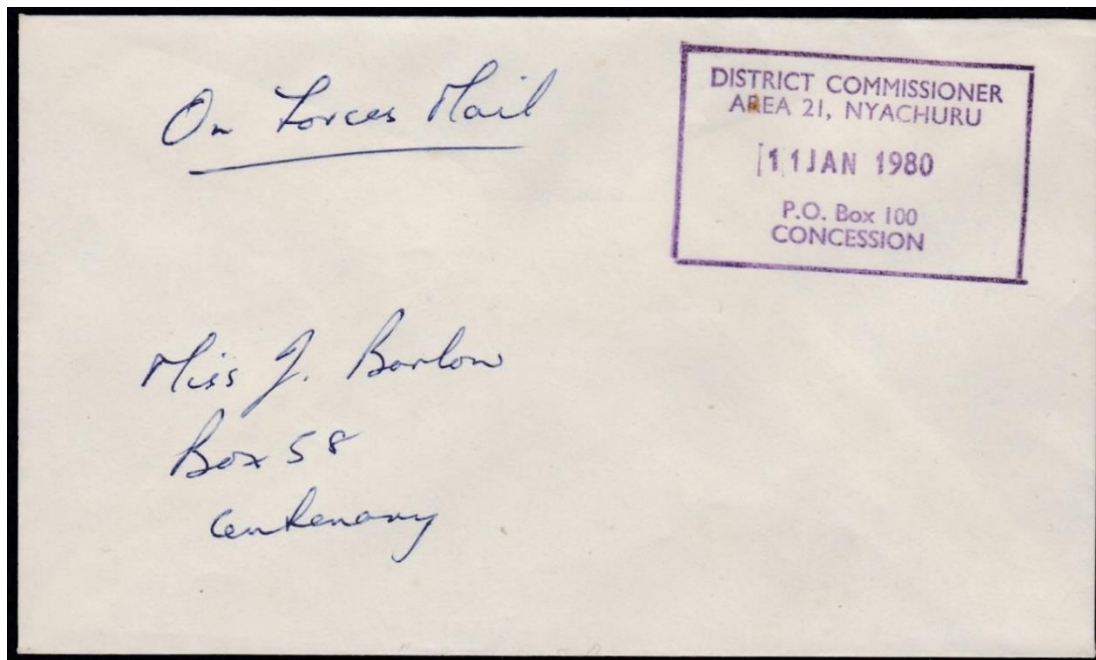 On Forces Mail
DISTRICT COMMISSIONER
AREA 21, NYACHURU
11 JAN 1980
P.O. Box 100
CONCESSION
Miss J. Barlow
Box 58
Centenary